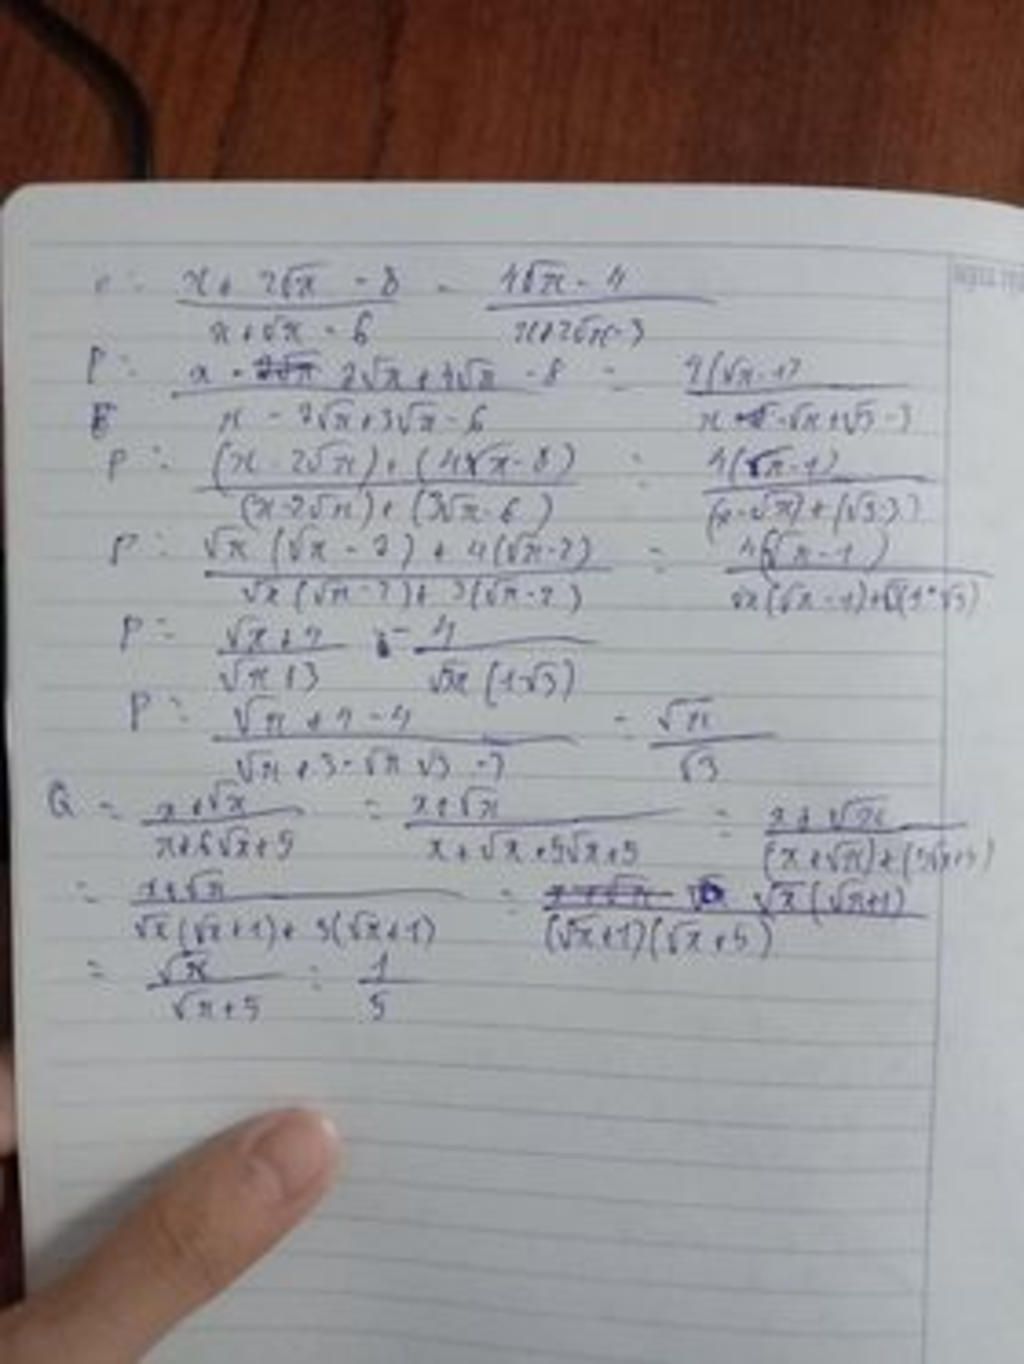 x + 2√x - 8 / x + √x - 6 - 4√x - 4 / x + 2√x - 3
P = x - 2√x + 4√x - 8 / x - 2√x + 3√x - 6 - / x - √x + √3 - 3
P = (x - 2√x) + (4√x - 8) / (x - 2√x) + (3√x - 6) - 4(√x - 1) / (x - √x) + (√3 - 3)
P = √x (√x - 2) + 4(√x - 2) / √x (√x - 2) + 3(√x - 2) - 4(√x - 1) / √x (√x - 1) +
P = √x + 4 / √x + 3 - 4 / √x (1 - √3)
P = √x + 4 - 4 / √x + 3 - √x √3 - 3 = √x / √3
Q = x + √x / x + 6√x + 5 = x + √x / x + √x + 5√x + 5 = x + √x / (x + √x) + (5√x + 5)
= x + √x / √x (√x + 1) + 5(√x + 1) = √x (√x + 1) / (√x + 1)(√x + 5)
= √x / √x + 5 = 1 / 5